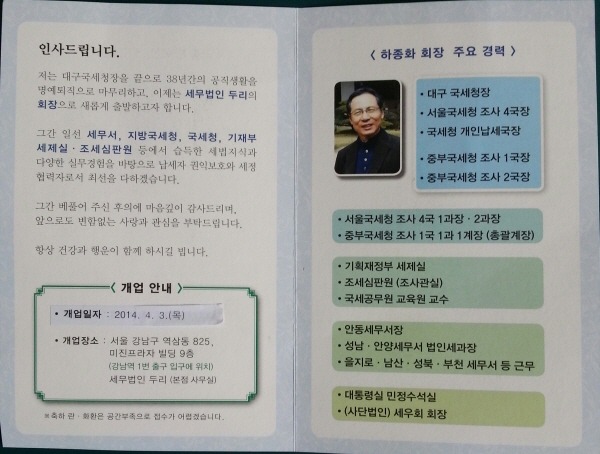 인사드립니다.
저는 대구국세청장을 끝으로 38년간의 공직생활을
명예퇴직으로 마무리하고, 이제는 세무법인 두리의
회장으로 새롭게 출발하고자 합니다.
그간 일선 세무서, 지방국세청, 국세청, 기재부
세제실 · 조세심판원 등에서 습득한 세법지식과
다양한 실무경험을 바탕으로 납세자 권익보호와 세정
협력자로서 최선을 다하겠습니다.
그간 베풀어 주신 후의에 마음깊이 감사드리며,
앞으로도 변함없는 사랑과 관심을 부탁드립니다.
항상 건강과 행운이 함께 하시길 빕니다.
〈 개업 안내 〉
• 개업일자 : 2014. 4. 3.(목)
• 개업장소 : 서울 강남구 역삼동 825,
미진프라자 빌딩 9층
(강남역 1번 출구 입구에 위치)
세무법인 두리 (본점 사무실)
※축하 란 · 화환은 공간부족으로 접수가 어렵겠습니다.
〈 하종화 회장 주요 경력 〉
• 대구 국세청장
• 서울국세청 조사 4국장
• 국세청 개인납세국장
• 중부국세청 조사 1국장
• 중부국세청 조사 2국장
• 서울국세청 조사 4국 1과장 · 2과장
• 중부국세청 조사 1국 1과 1계장 (총괄계장)
• 기획재정부 세제실
• 조세심판원 (조사관실)
• 국세공무원 교육원 교수
• 안동세무서장
• 성남 · 안양세무서 법인세과장
• 을지로 · 남산 · 성북 · 부천 세무서 등 근무
• 대통령실 민정수석실
• (사단법인) 세우회 회장